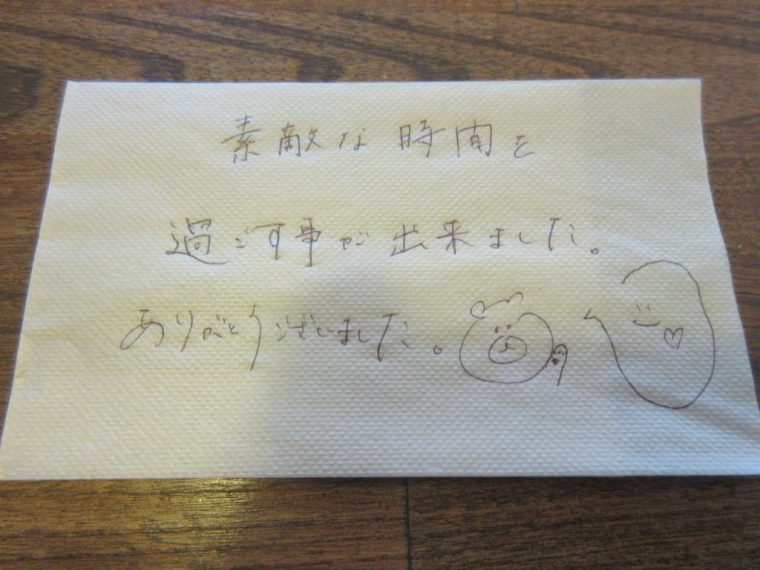 素敵な時間を
過ごす事が出来ました。
ありがとうございました。